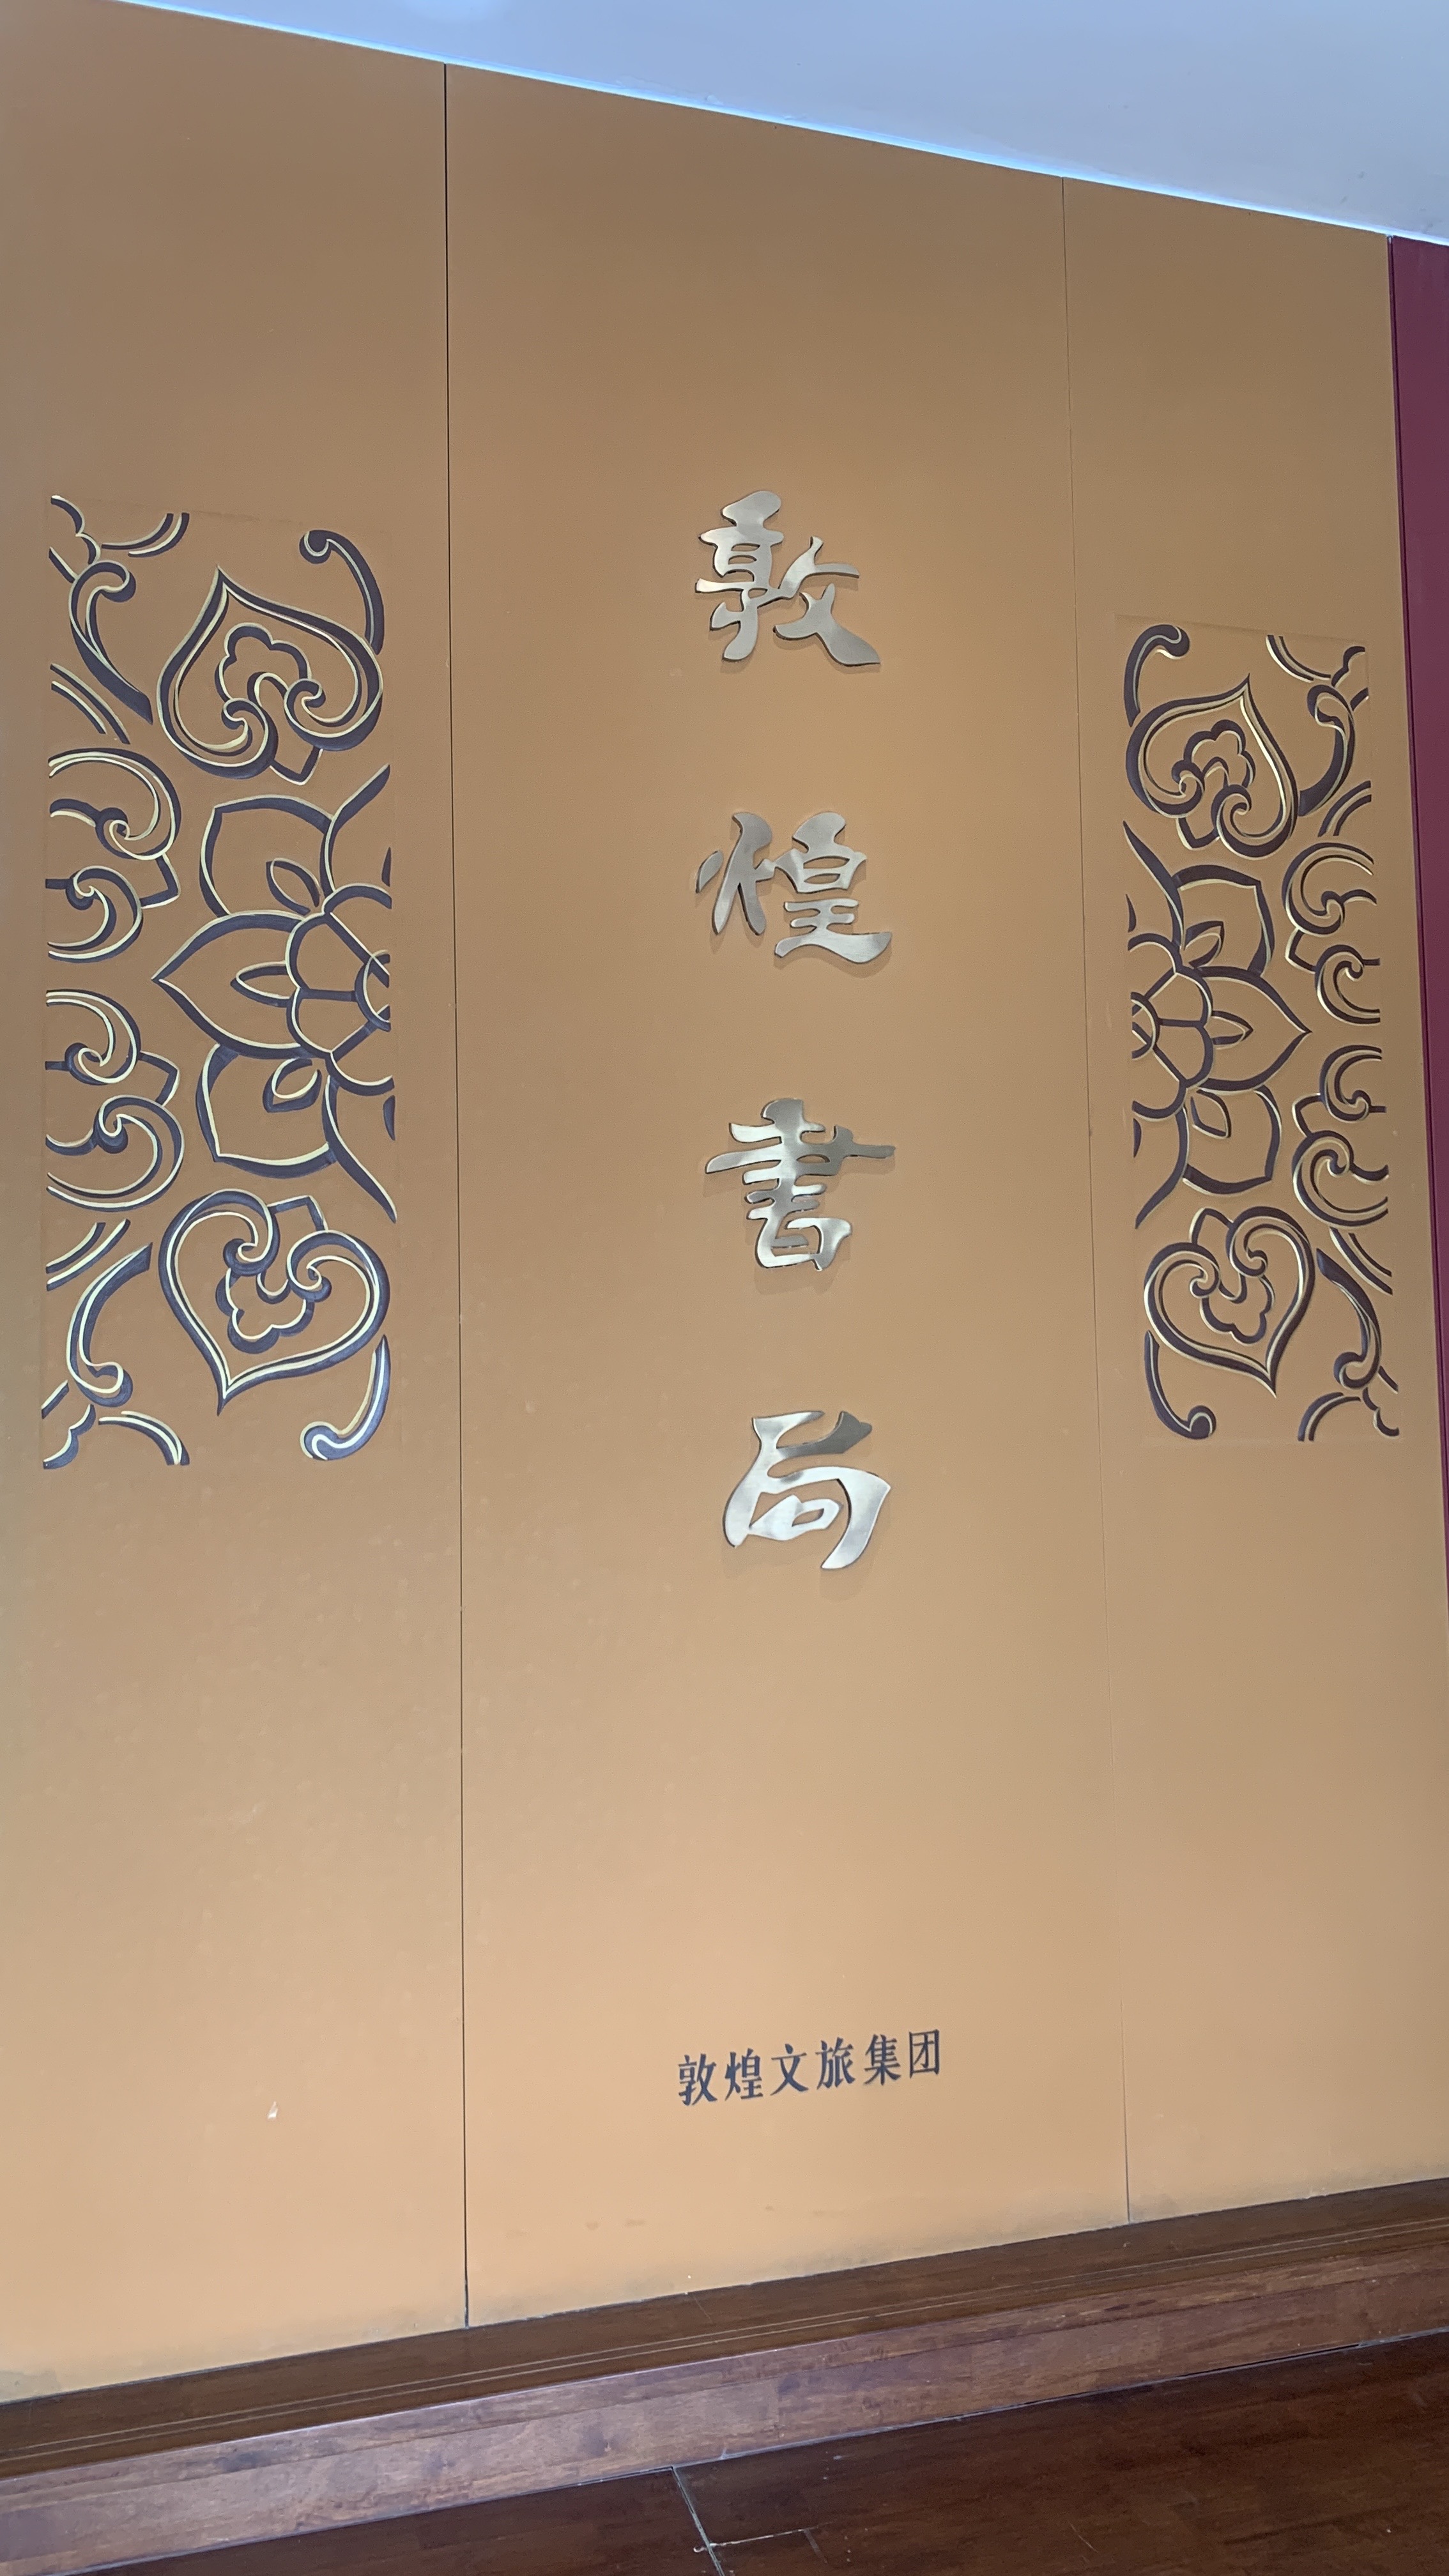 敦煌書局
敦煌文旅集团